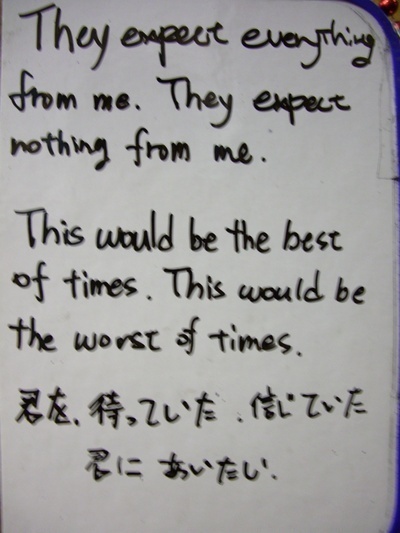 They expect everything
from me. They expect
nothing from me.
This would be the best
of times. This would be
the worst of times.
君を、待っていた、信じていた
君に あいたい.